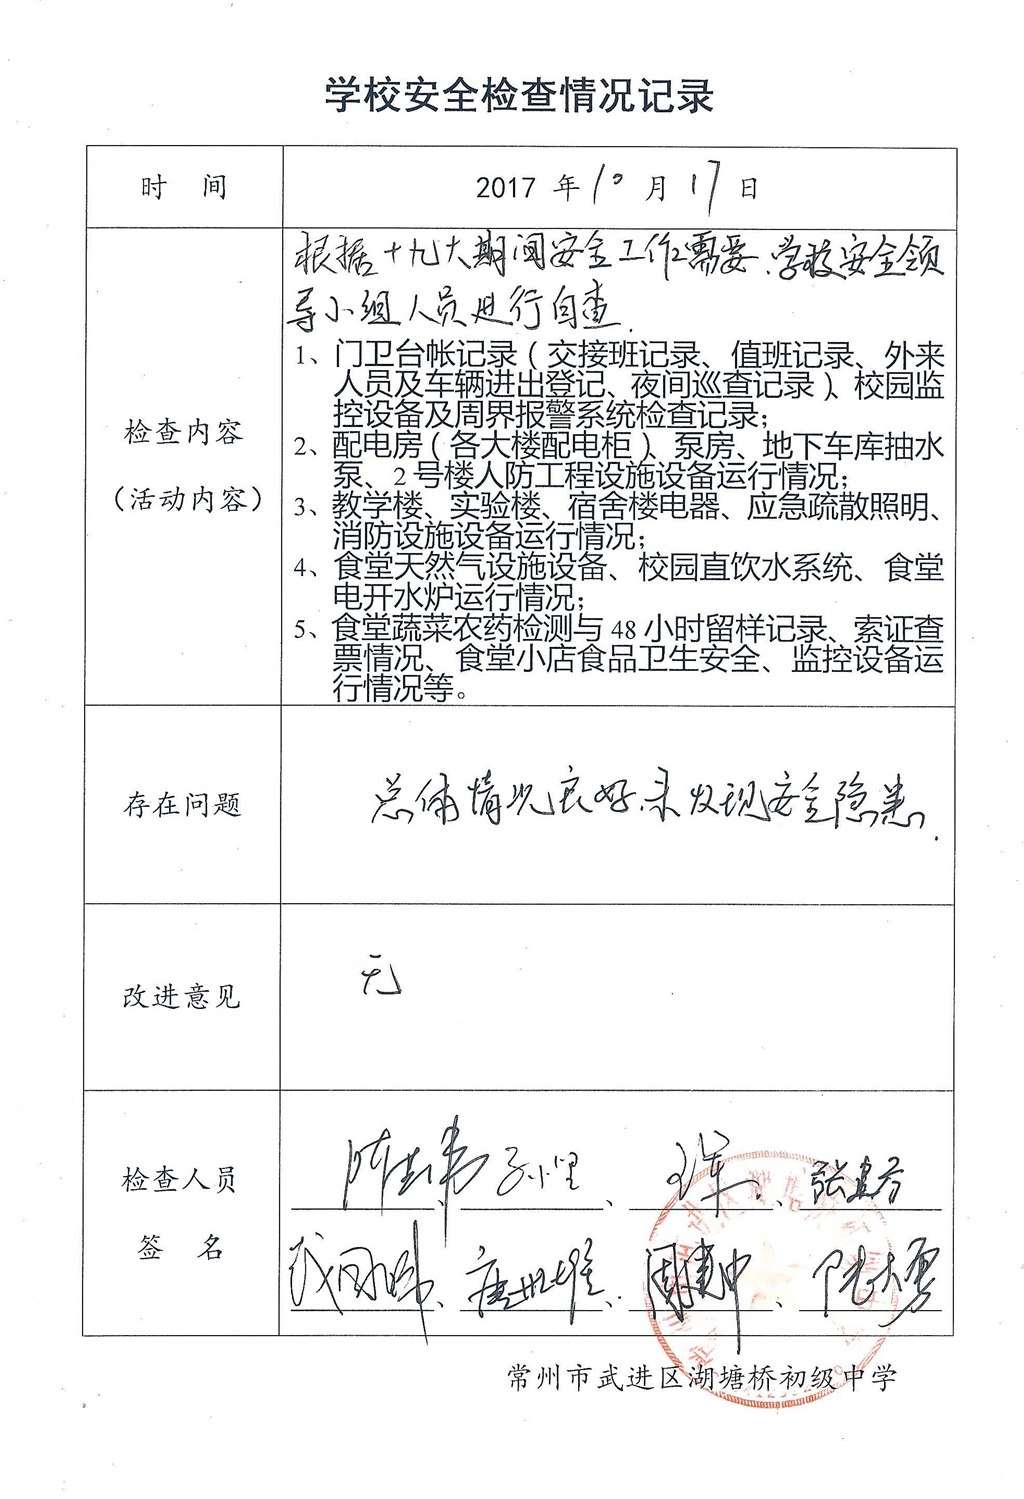 学校安全检查情况记录
时 间
2017 年 10 月 17 日
根据十九大期间安全工作需要、学校安全领
导小组人员进行自查.
检查内容
（活动内容）
1、门卫台帐记录（交接班记录、值班记录、外来
人员及车辆进出登记、夜间巡查记录）、校园监
控设备及周界报警系统检查记录；
2、配电房（各大楼配电柜）、泵房、地下车库抽水
泵、2 号楼人防工程设施设备运行情况；
3、教学楼、实验楼、宿舍楼电器、应急疏散照明、
消防设施设备运行情况；
4、食堂天然气设施设备、校园直饮水系统、食堂
电开水炉运行情况；
5、食堂蔬菜农药检测与 48 小时留样记录、索证查
票情况、食堂小店食品卫生安全、监控设备运
行情况等。
存在问题
总体情况良好，未发现安全隐患.
改进意见
无
检查人员
签 名
、 、 王军 、 张建芳
、 、 周建中 、 陆大勇
常州市武进区湖塘桥初级中学